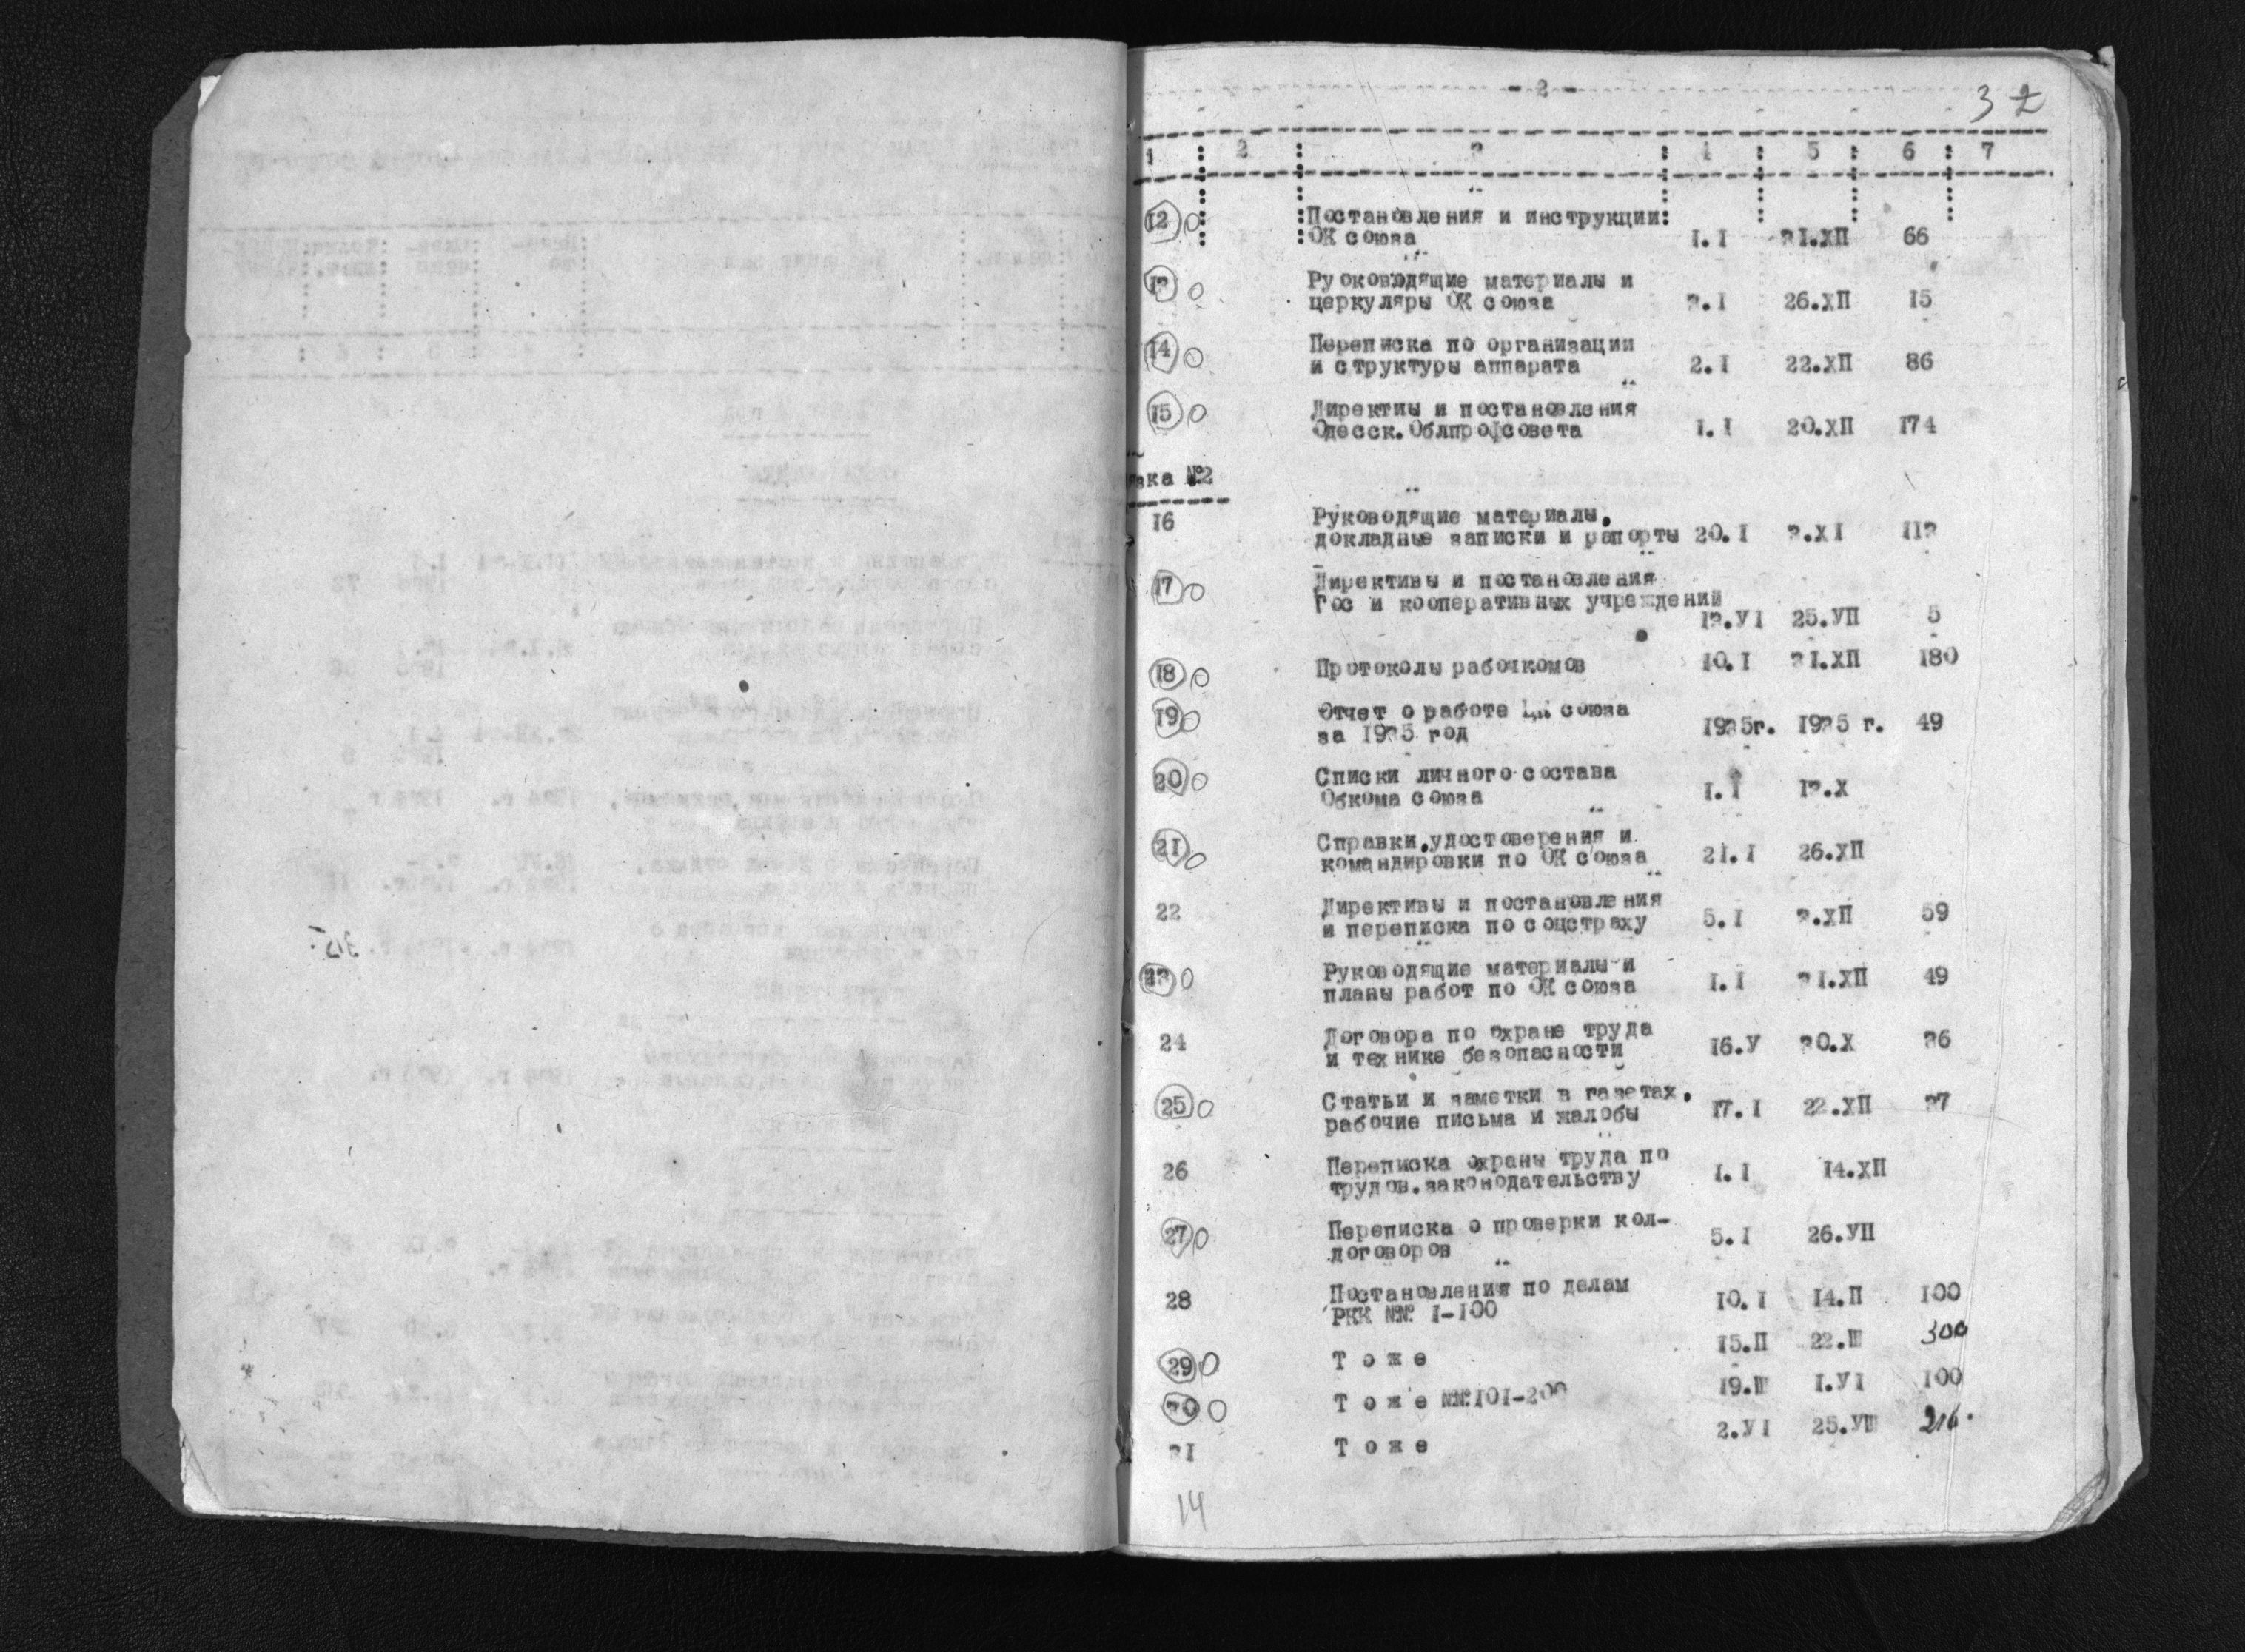 - 2 -
3 2
1 : 2 : 3 : 4 : 5 : 6 : 7
12 0 Постановления и инструкции:
ОК союза 1.I 31.ХП 66
13 0 Руоководящие материалы и
церкуляры ОК союза 3.I 26.ХП 15
14 0 Переписка по организации
и структуры аппарата 2.I 22.ХП 86
15 0 Директиы и постановления
Одесск.Облпрофсовета 1.I 20.ХП 174
зка №2
16 Руководящие материалы,
докладные записки и рапорты 20.I 3.ХI 113
17 0 Директивы и постановления
Гос и кооперативных учреждений
13.УI 25.УП 5
18 0 Протоколы рабочкомов 10.I 31.ХП 180
19 0 Отчет о работе ЦК союза
за 1935 год 1935г. 1935 г. 49
20 0 Списки личного состава
Обкома союза 1.I 13.Х
21 0 Справки,удостоверения и
командировки по ОК союза 21.I 26.ХП
22 Директивы и постановления
и переписка по соцстраху 5.I 3.ХП 59
23 0 Руководящие материалы и
планы работ по ОК союза 1.I 31.ХП 49
24 Договора по охране труда
и технике безопасности 16.У 30.Х 36
25 0 Статьи и заметки в газетах,
рабочие письма и жалобы 17.I 22.ХП 37
26 Переписка охраны труда по
трудов.законодательству 1.I 14.ХП
27 0 Переписка о проверки кол-
договоров 5.I 26.УП
28 Постановления по делам
РКК №№ 1-100 10.I 14.П 100
29 0 Т о ж е 15.П 22.Ш 300
30 0 Т о ж е №№101-200 19.Ш 1.УI 100
31 Т о ж е 2.УI 25.УШ 216.
14